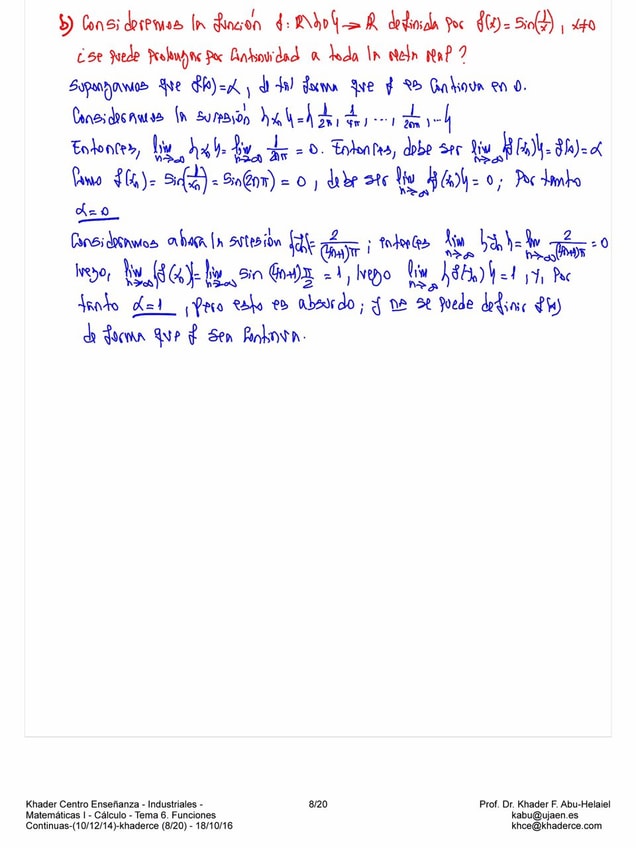 b) Consideremos la función f: R\{0} → R definida por f(x) = Sin(1/x), x≠0
¿se puede prolongar por Continuidad a toda la recta real?
Supongamos que f(0)=α, de tal forma que f es Continua en 0.
Consideramos la sucesión {xn} = {1/2π, 1/4π, ..., 1/2nπ, ...}
Entonces, lim n→∞ {xn} = lim n→∞ 1/2nπ = 0. Entonces, debe ser lim n→∞ {f(xn)} = f(0) = α
Como f(xn) = Sin(1/xn) = Sin(2nπ) = 0, debe ser lim n→∞ {f(xn)} = 0; Por tanto
α=0
Consideramos ahora la sucesión {xn} = 2/(4n+1)π; entonces lim n→∞ {xn} = lim n→∞ 2/(4n+1)π = 0
luego, lim n→∞ {f(xn)} = lim n→∞ sin (4n+1)π/2 = 1, luego lim n→∞ {f(xn)} = 1, y, Por
tanto α=1, pero esto es absurdo; y no se puede definir f(0)
de forma que f sea Continua.
Khader Centro Enseñanza - Industriales -
Matemáticas I - Cálculo - Tema 6. Funciones
Continuas-(10/12/14)-khaderce (8/20) - 18/10/16
8/20
Prof. Dr. Khader F. Abu-Helaiel
kabu@ujaen.es
khce@khaderce.com